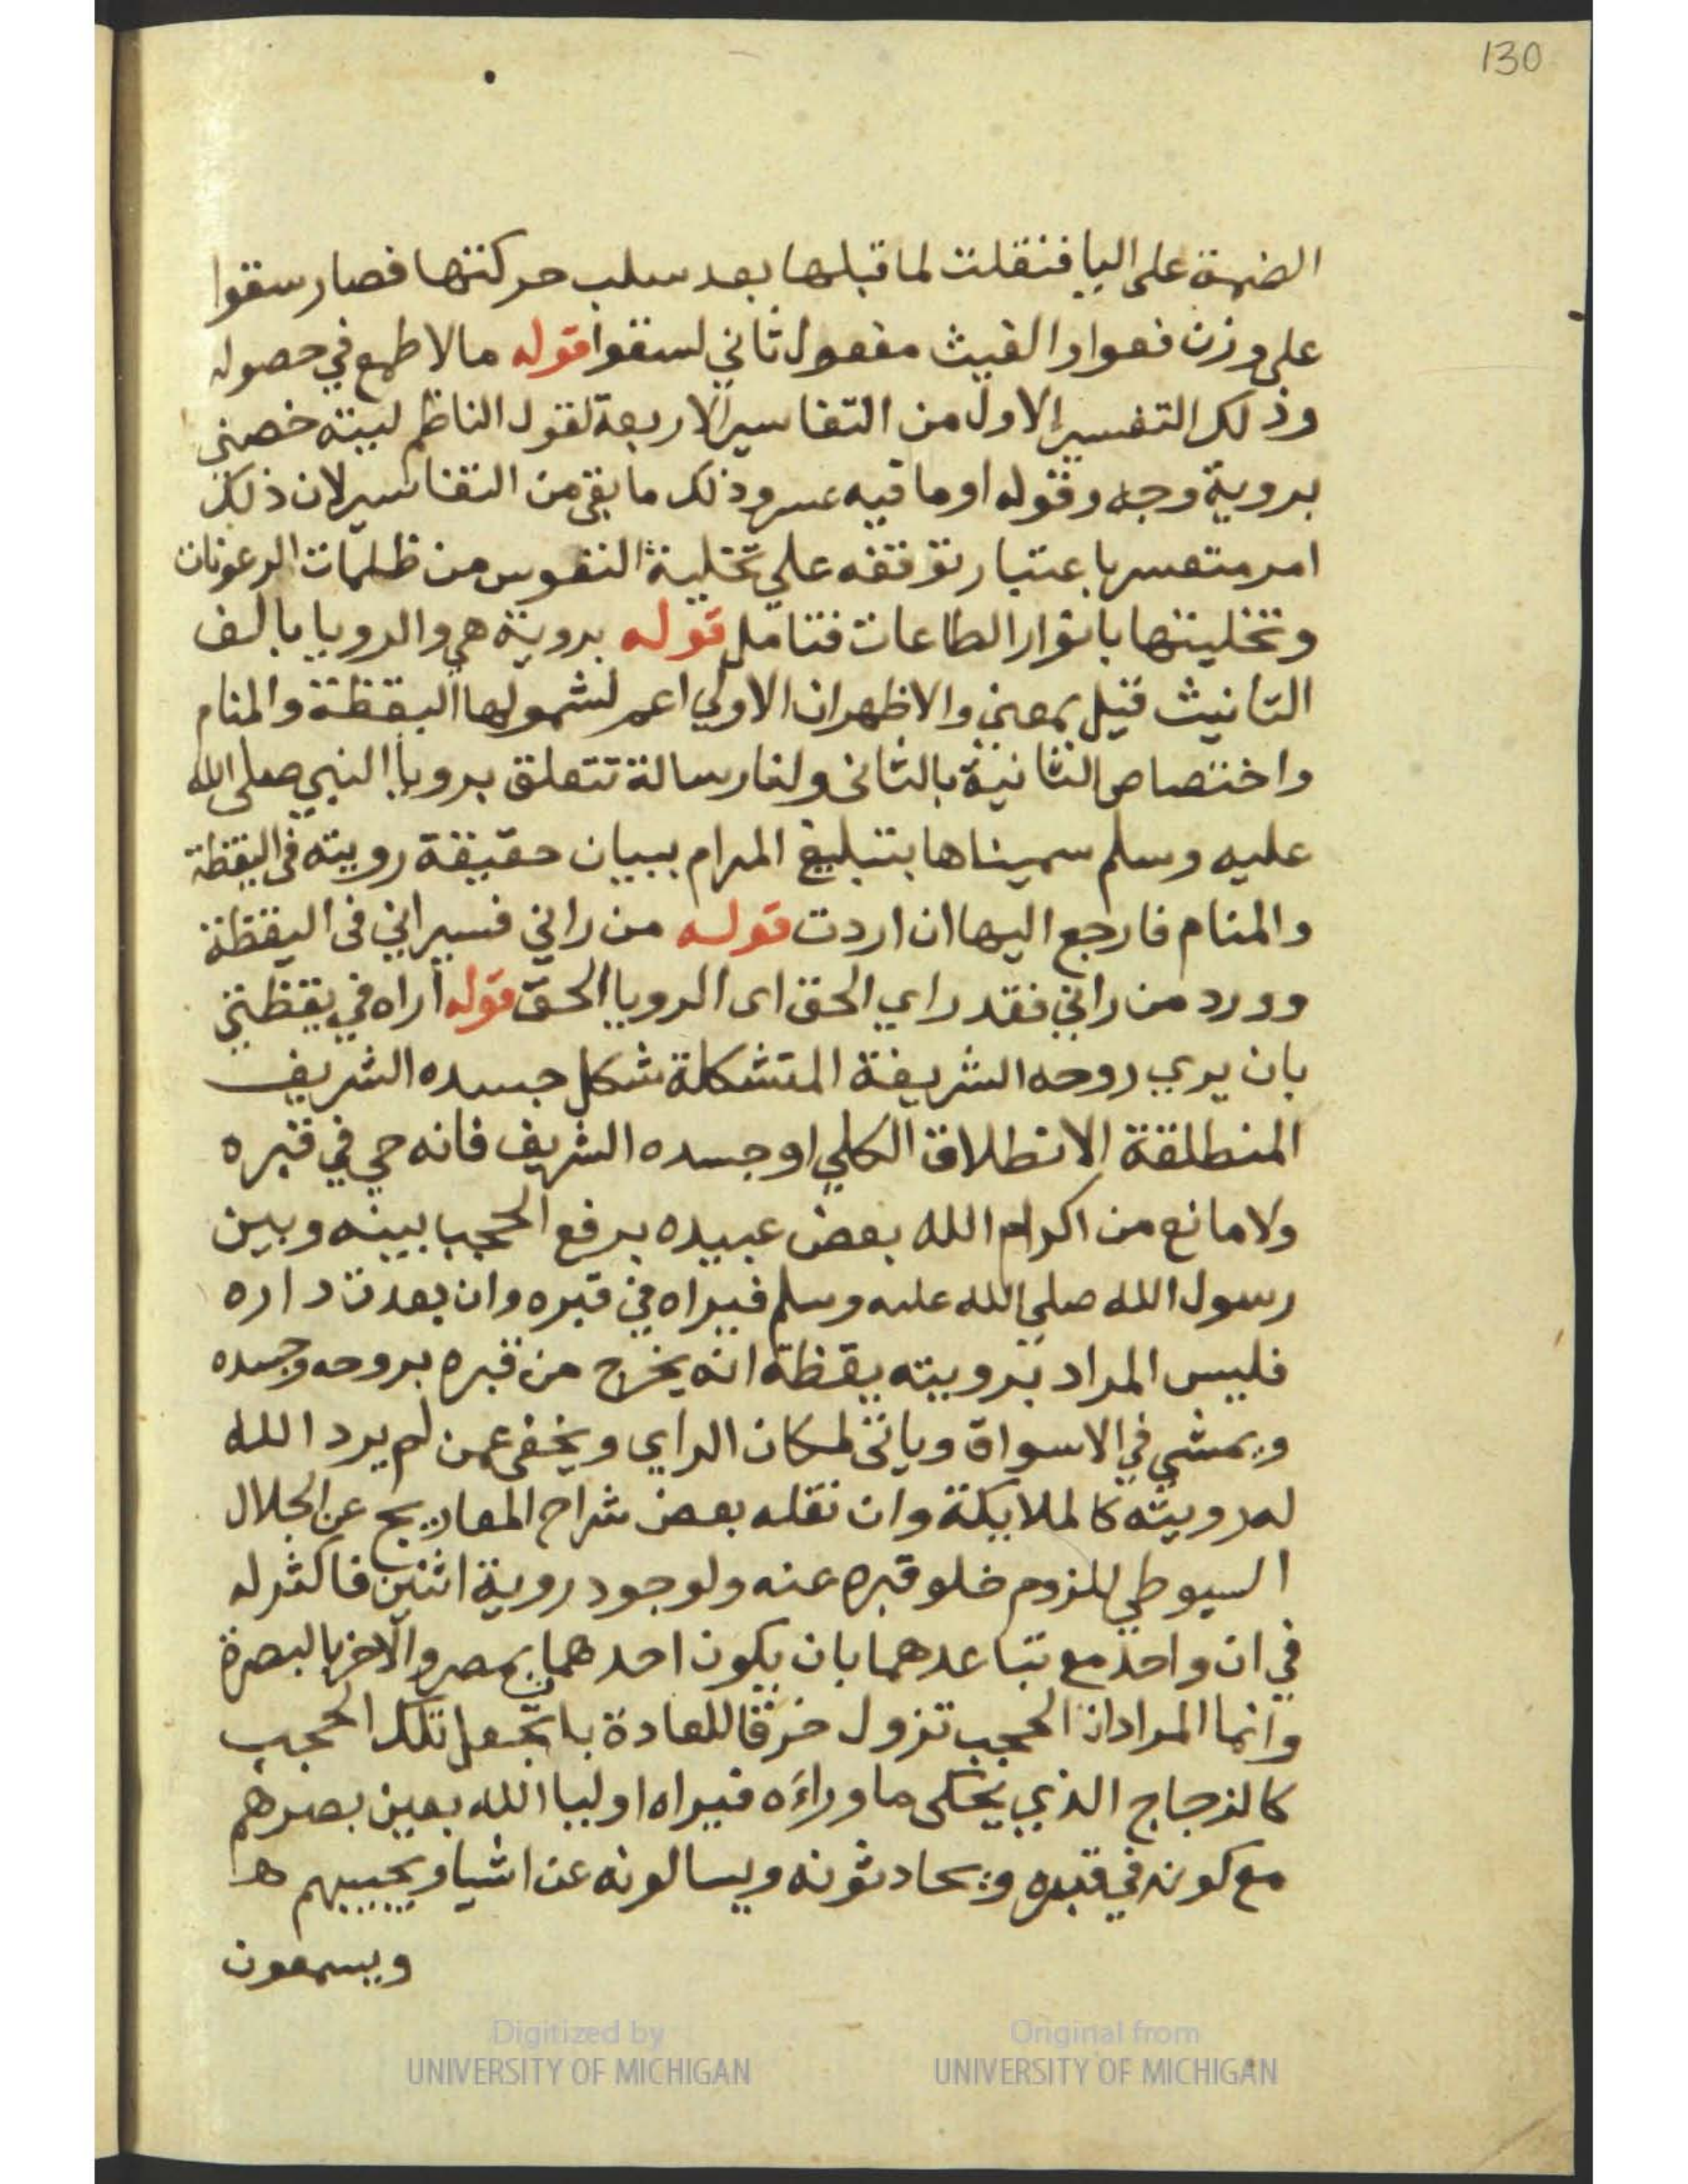 130
الضمة على اليا فنقلت لما قبلها بعد سلب حركتها فصار سقوا
على وزن فعوا والغيث مفعول ثاني لسقوا قوله مالا طمع في حصوله
وذلك التفسير الاول من التفاسير الاربعة لقول الناظم ليته خصني
بروية وجه وقوله او ما فيه عسر وذلك ما بقي من التفاسير لان ذلك
امر متعسر باعتبار توقفه علي تخلية النفوس من ظلمات الرعونات
وتحليتها بانوار الطاعات فتامل قوله بروية هي والرويا بالف
التانيث قيل بمعني والاظهر ان الاولي اعم لشمولها اليقظة والمنام
واختصاص الثانية بالثانى ولنا رسالة تتعلق برويا النبي صلى الله
عليه وسلم سميناها بتبليغ المرام ببيان حقيقة رويته في اليقظة
والمنام فارجع اليها ان اردت قوله من راني فسيراني فى اليقظة
وورد من راني فقد راي الحق اى الرويا الحق قوله اراه في يقظتي
بان يري روحه الشريفة المتشكلة شكل جسده الشريف
المنطلقة الانطلاق الكلي او جسده الشريف فانه حي في قبره
ولا مانع من اكرام الله بعض عبيده برفع الحجب بينه وبين
رسول الله صلي الله عليه وسلم فيراه في قبره وان بعدت داره
فليس المراد برويته يقظة انه يخرج من قبره بروحه وجسده
ويمشي في الاسواق وياتى لمكان الراي ويخفى عمن لم يرد الله
له رويته كالملايكة وان نقله بعض شراح المعاريج عن الجلال
السيوطي للزوم خلو قبره عنه ولوجود روية اثنين فاكثر له
في ان واحد مع تباعدهما بان يكون احدهما بمصر والاخر بالبصرة
وانما المراد ان الحجب تزول خرقا للعادة بان تجعل تلك الحجب
كالزجاج الذي يحكى ما وراءه فيراه اوليا الله بعين بصرهم
مع كونه في قبره ويحادثونه ويسالونه عن اشيا ويجيبهم ها
ويسمعون
Digitized by
UNIVERSITY OF MICHIGAN
Original from
UNIVERSITY OF MICHIGAN